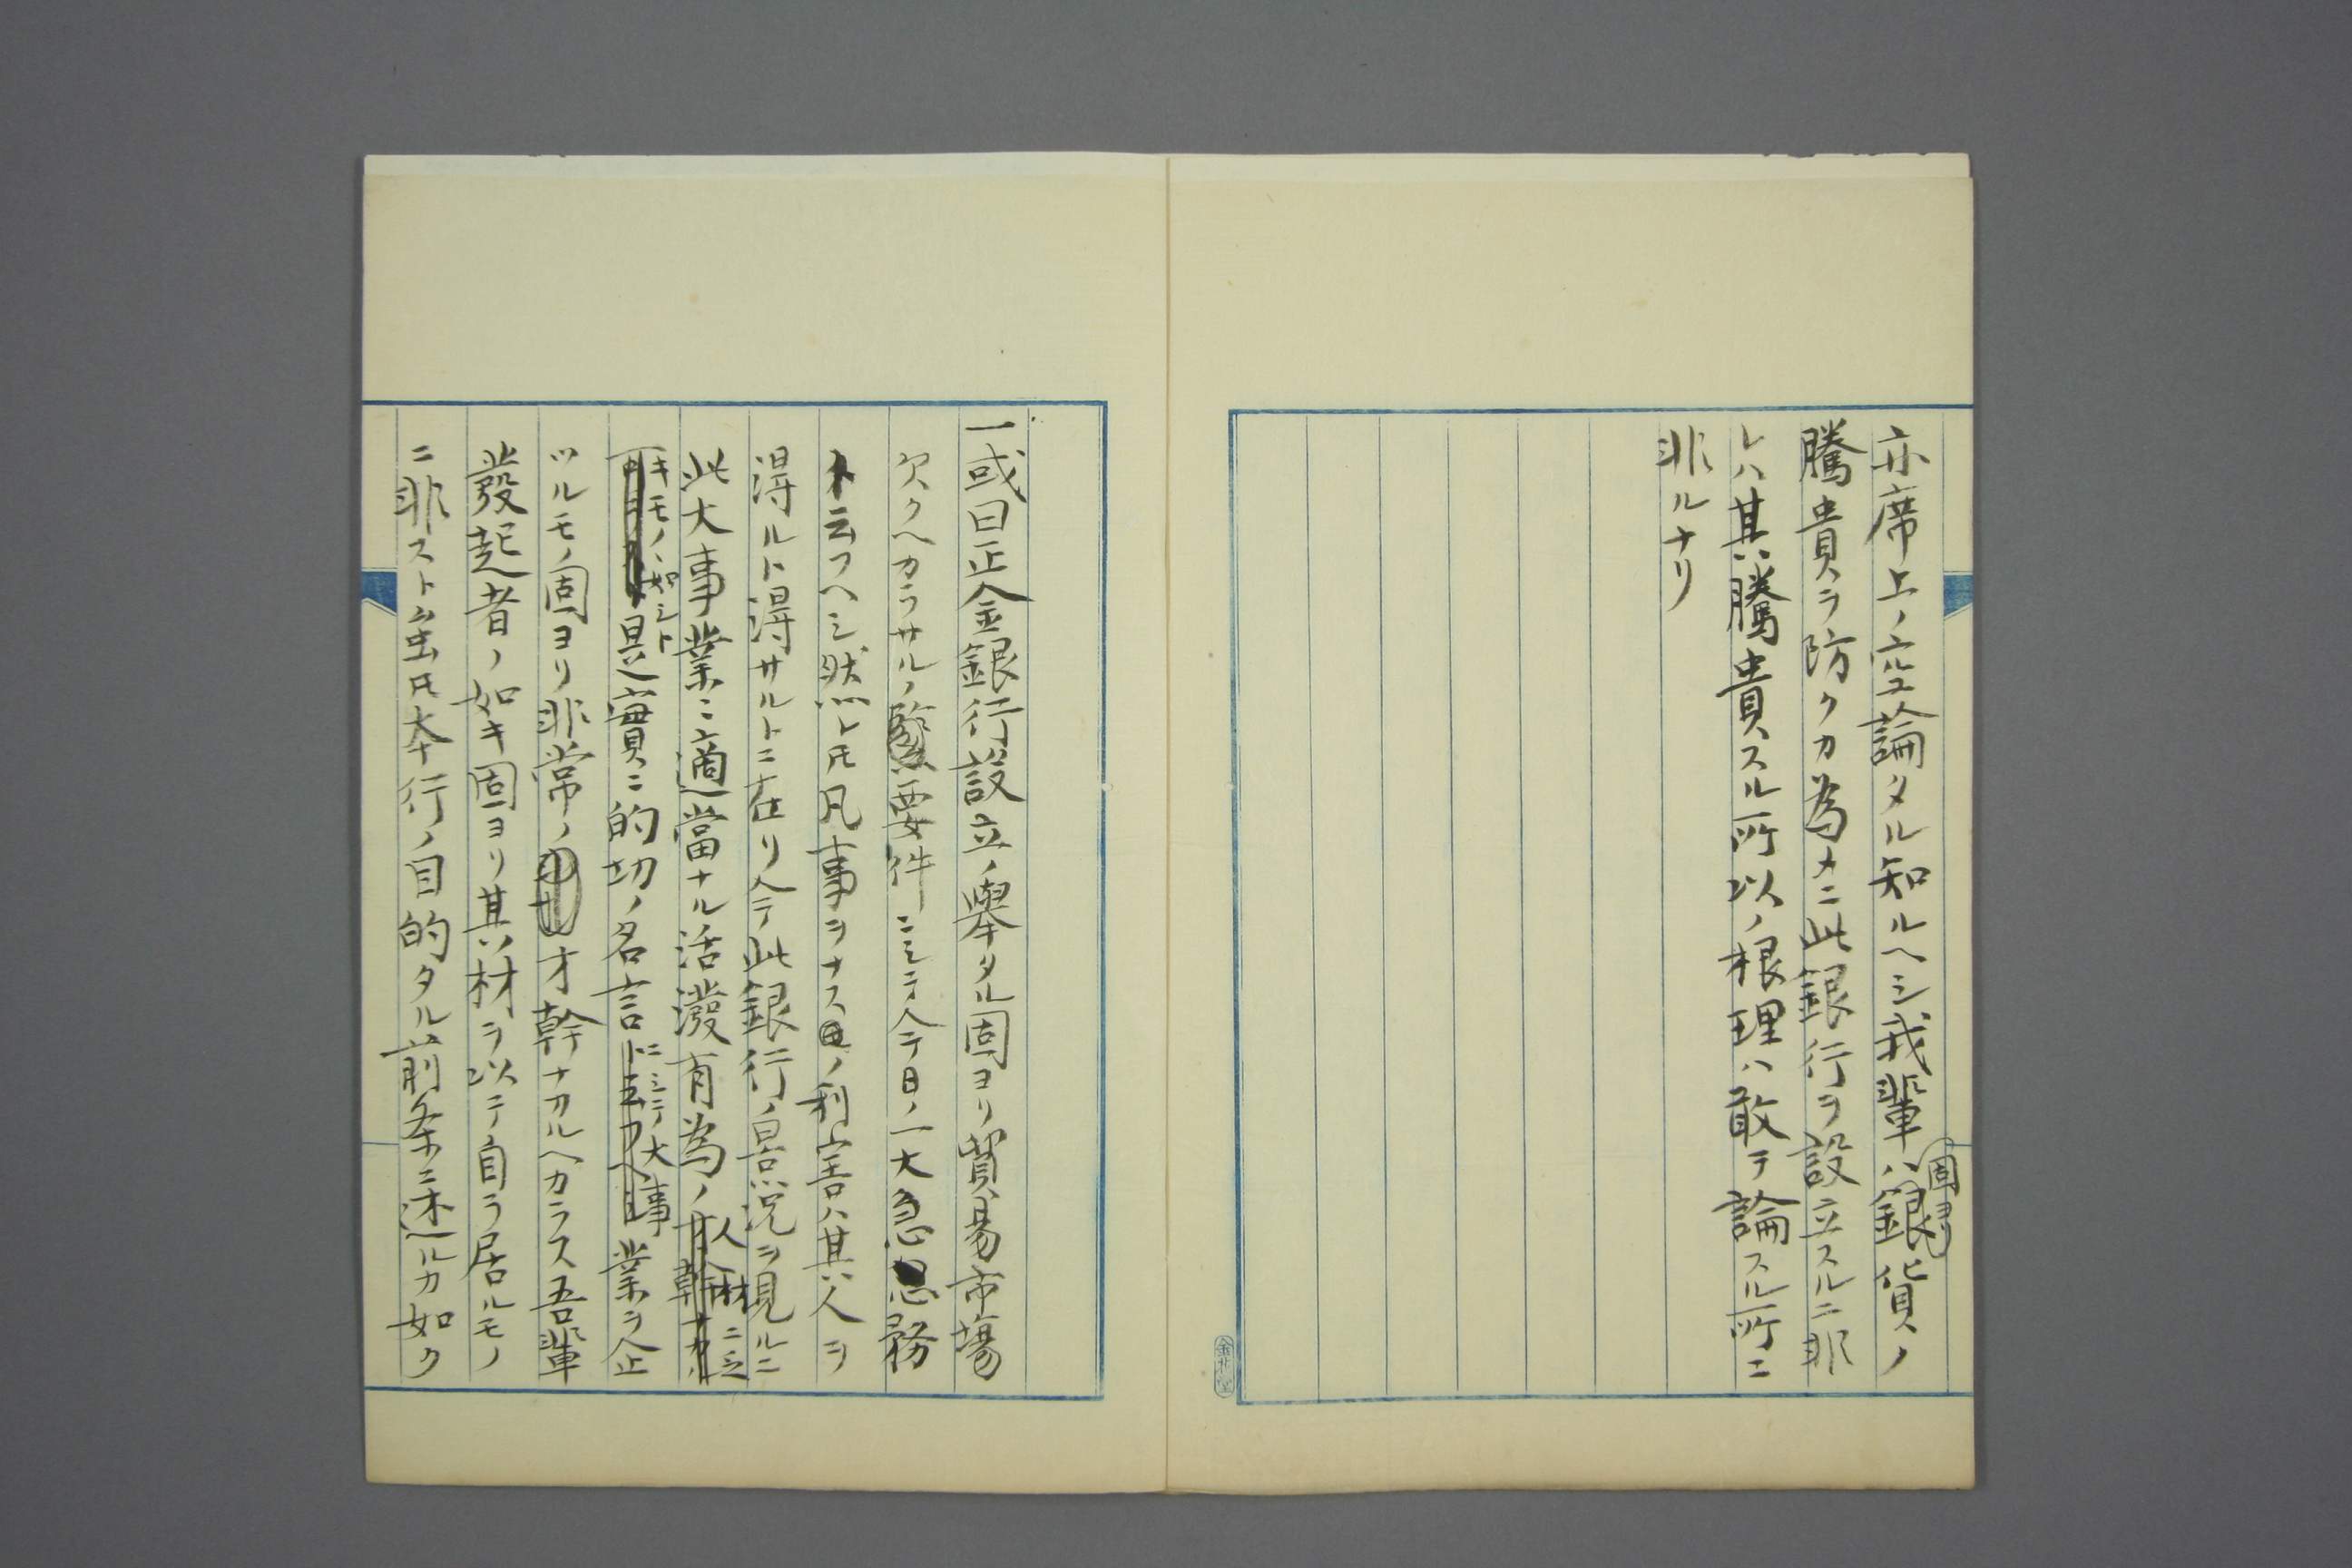 亦席上ノ空論タル知ルヘシ我輩ハ固ヨリ銀貨ノ
騰貴ヲ防クカ為メニ此銀行ヲ設立スルニ非
レハ其騰貴スル所以ノ根理ハ敢テ論スル所ニ
非ルナリ
一或曰正金銀行設立ノ挙タル固ヨリ貿易市場
欠クヘカラサルノ要件ニシテ今日ノ一大急務
ト云フヘシ然レ𪜈凡事ヲナスノ利害ハ其人ヲ
得ルト得サルトニ在リ今此銀行ノ景況ヲ見ルニ
此大事業ニ適當ナル活溌有為ノ人材ニ乏
キモノヽ如シト是實ニ的切ノ名言ニシテ大事業ヲ企
ツルモノ固ヨリ非常ノ才幹ナカルヘカラス吾輩
發起者ノ如キ固ヨリ其材ヲ以テ自ラ居ルモノ
ニ非スト虽𪜈本行ノ目的タル前条ニ述ルカ如ク